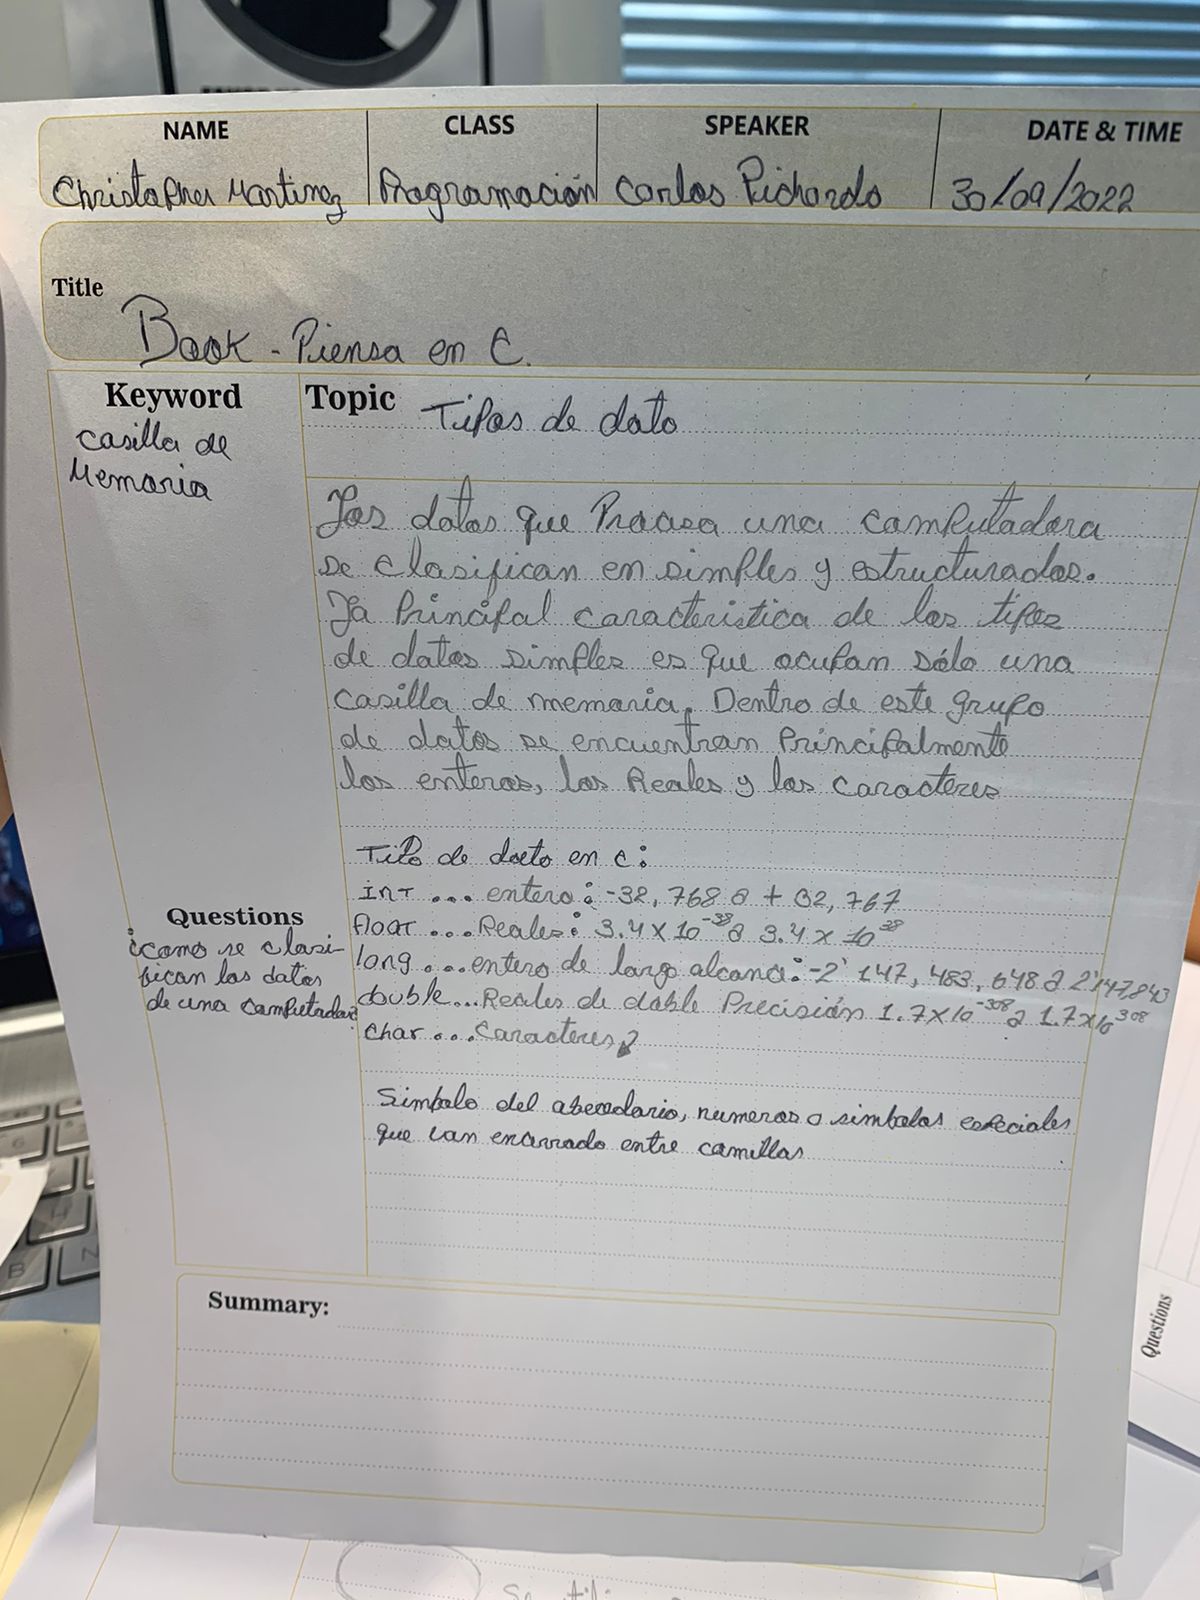 NAME CLASS SPEAKER DATE & TIME
Christopher Martinez Programación Carlos Pichardo 30/09/2022
Title
Book - Piensa en C.
Keyword
casilla de
Memoria
Topic Tipos de dato
Los datos que Procesa una computadora
se clasifican en simples y estructurados.
La Principal caracteristica de los tipos
de datos simples es que ocupan sólo una
casilla de memoria. Dentro de este grupo
de datos se encuentran Principalmente
los enteros, los Reales y los caracteres
Tipo de dato en c:
INT ... entero: -32, 768 a + 32, 767
float ... Reales: 3.4 x 10^-38 a 3.4 x 10^38
long ... entero de largo alcance: -2' 147, 483, 648 a 2'147,843
double... Reales de doble Precisión 1.7x10^-308 a 1.7x10^308
char ... caracteres
Simbolo del abecedario, numeros o simbolos especiales
que van encerrado entre comillas
Questions
¿como se clasi-
fican los datos
de una computadora?
Summary:
Questions